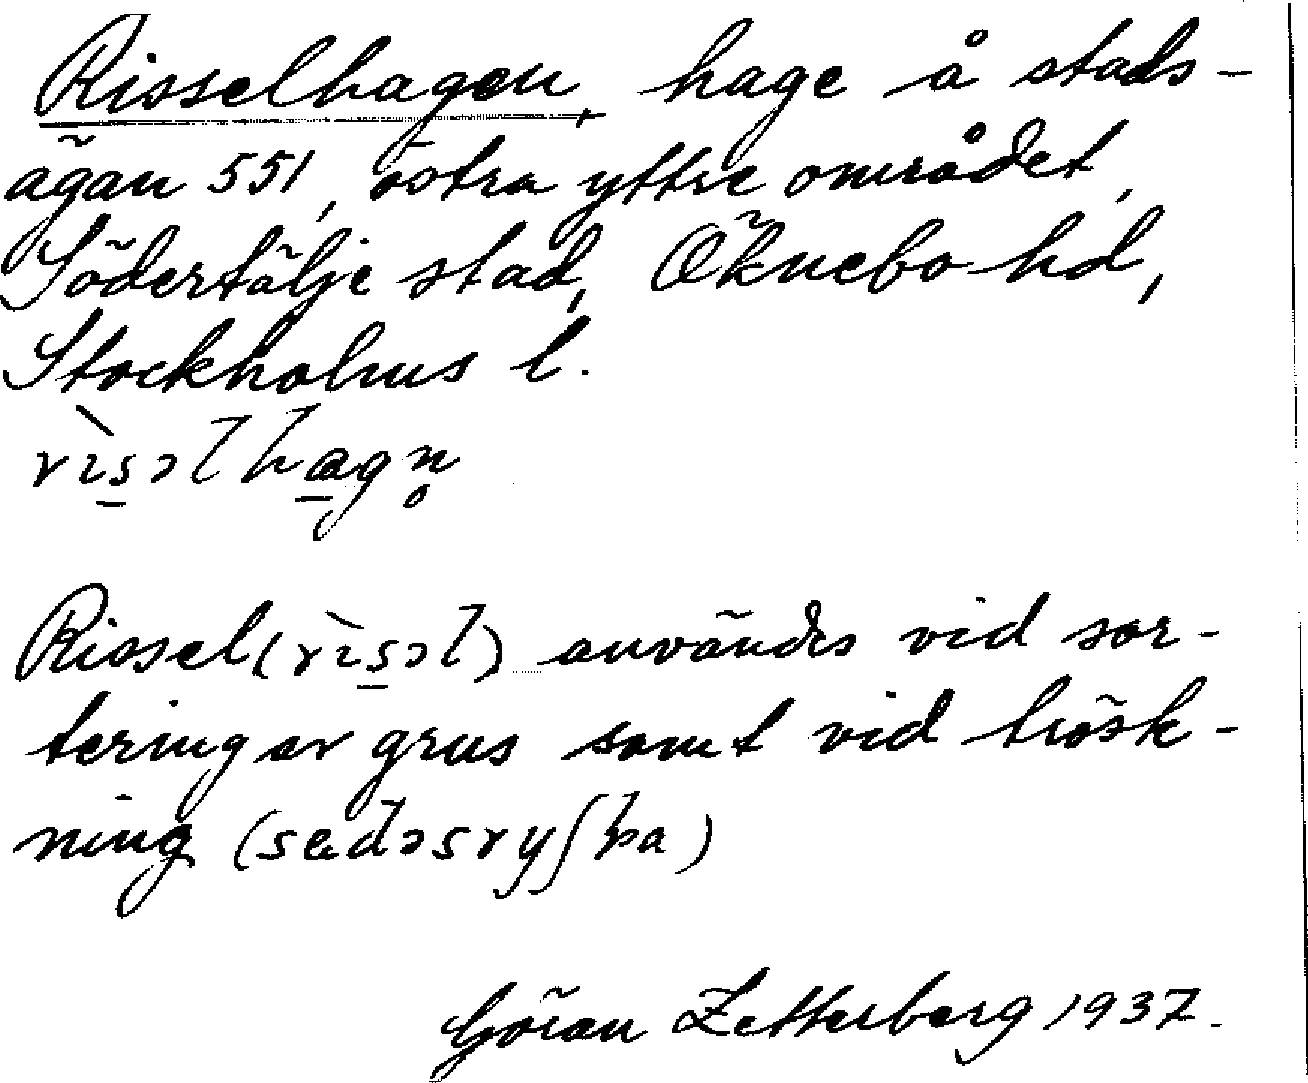 Risselhagen, hage å stads-
ägan 551, östra yttre området,
Södertälje stad, Öknebo hd,
Stockholms l.
rìsəl hagn̥
Rissel (rìsəl) användes vid sor-
tering av grus samt vid trösk-
ning
Göran Zetterberg 1937.